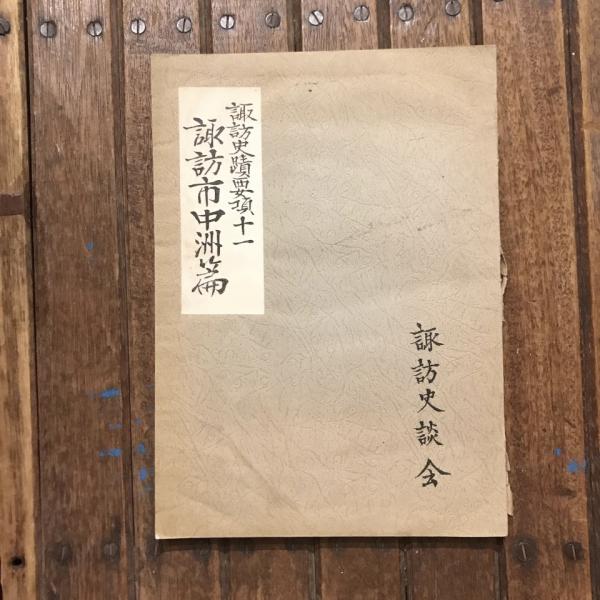 諏訪史蹟要項十一
諏訪市中洲篇
諏訪史談会